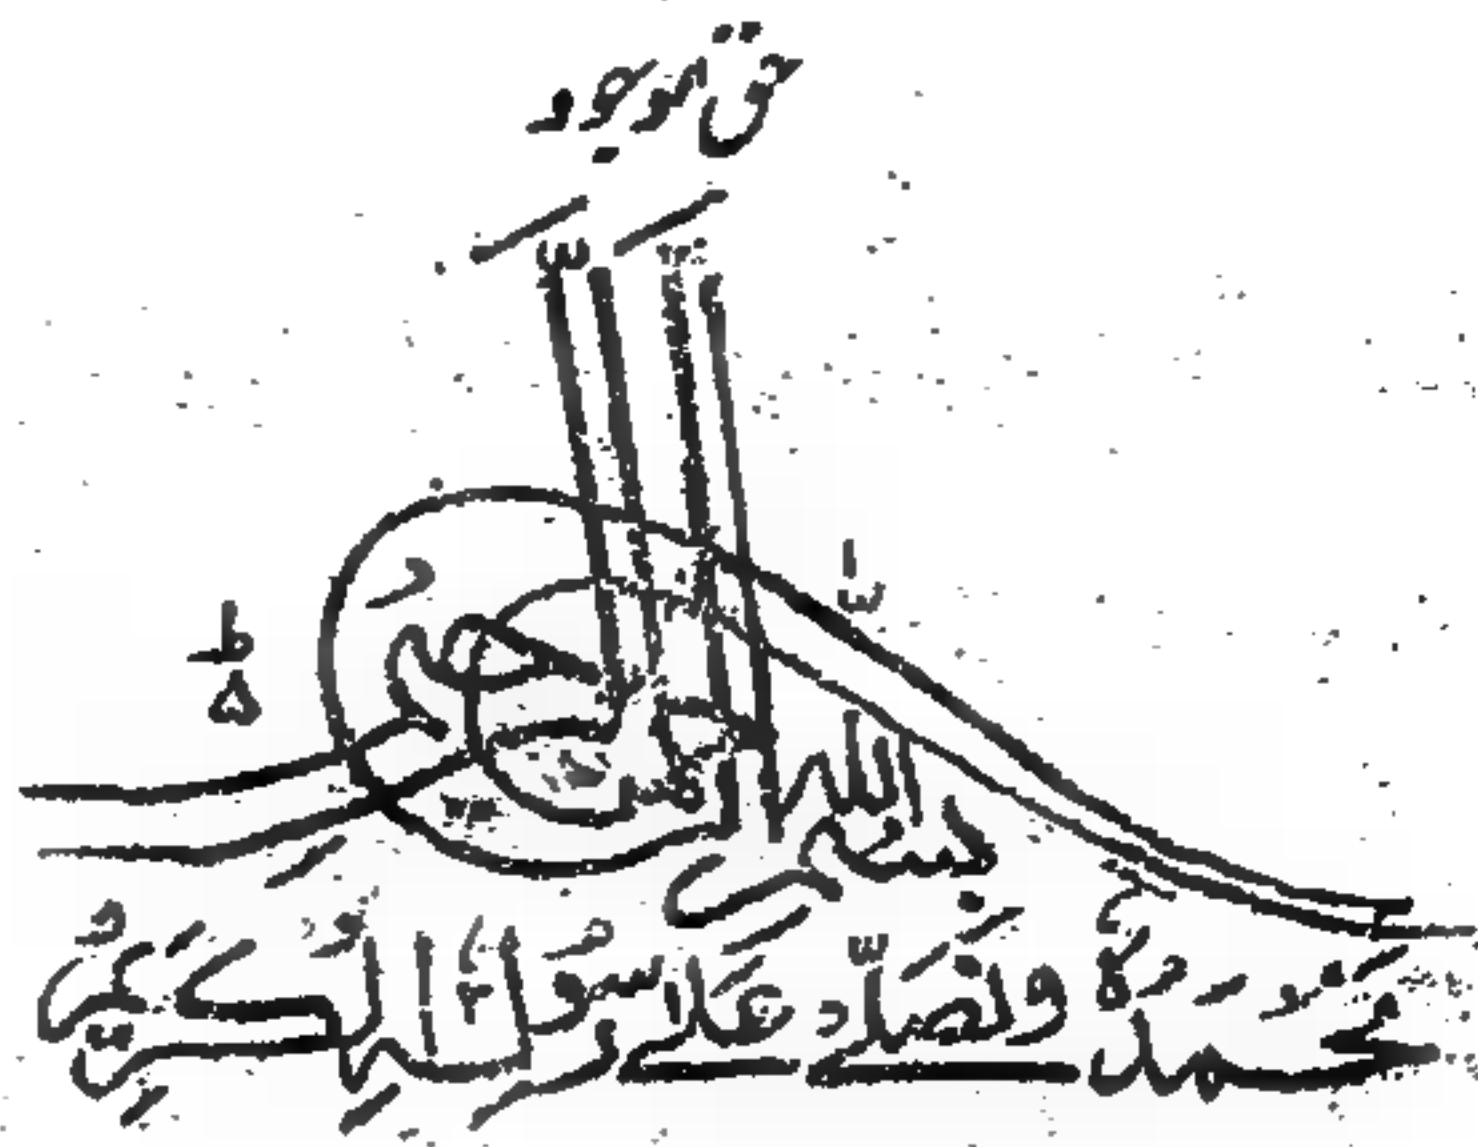 حق موجود
بسم الله الرحمن الرحيم
نحمده ونصلے علے رسوله الكريم